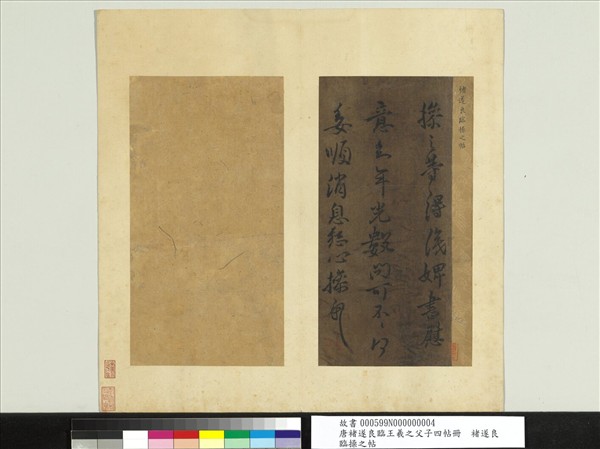 褚遂良臨操之帖
操之等得識婢書慰
意之年光數問可不々得
委順消息懸心操報
故書 000599N000000004
唐褚遂良臨王羲之父子四帖冊　褚遂良
臨操之帖